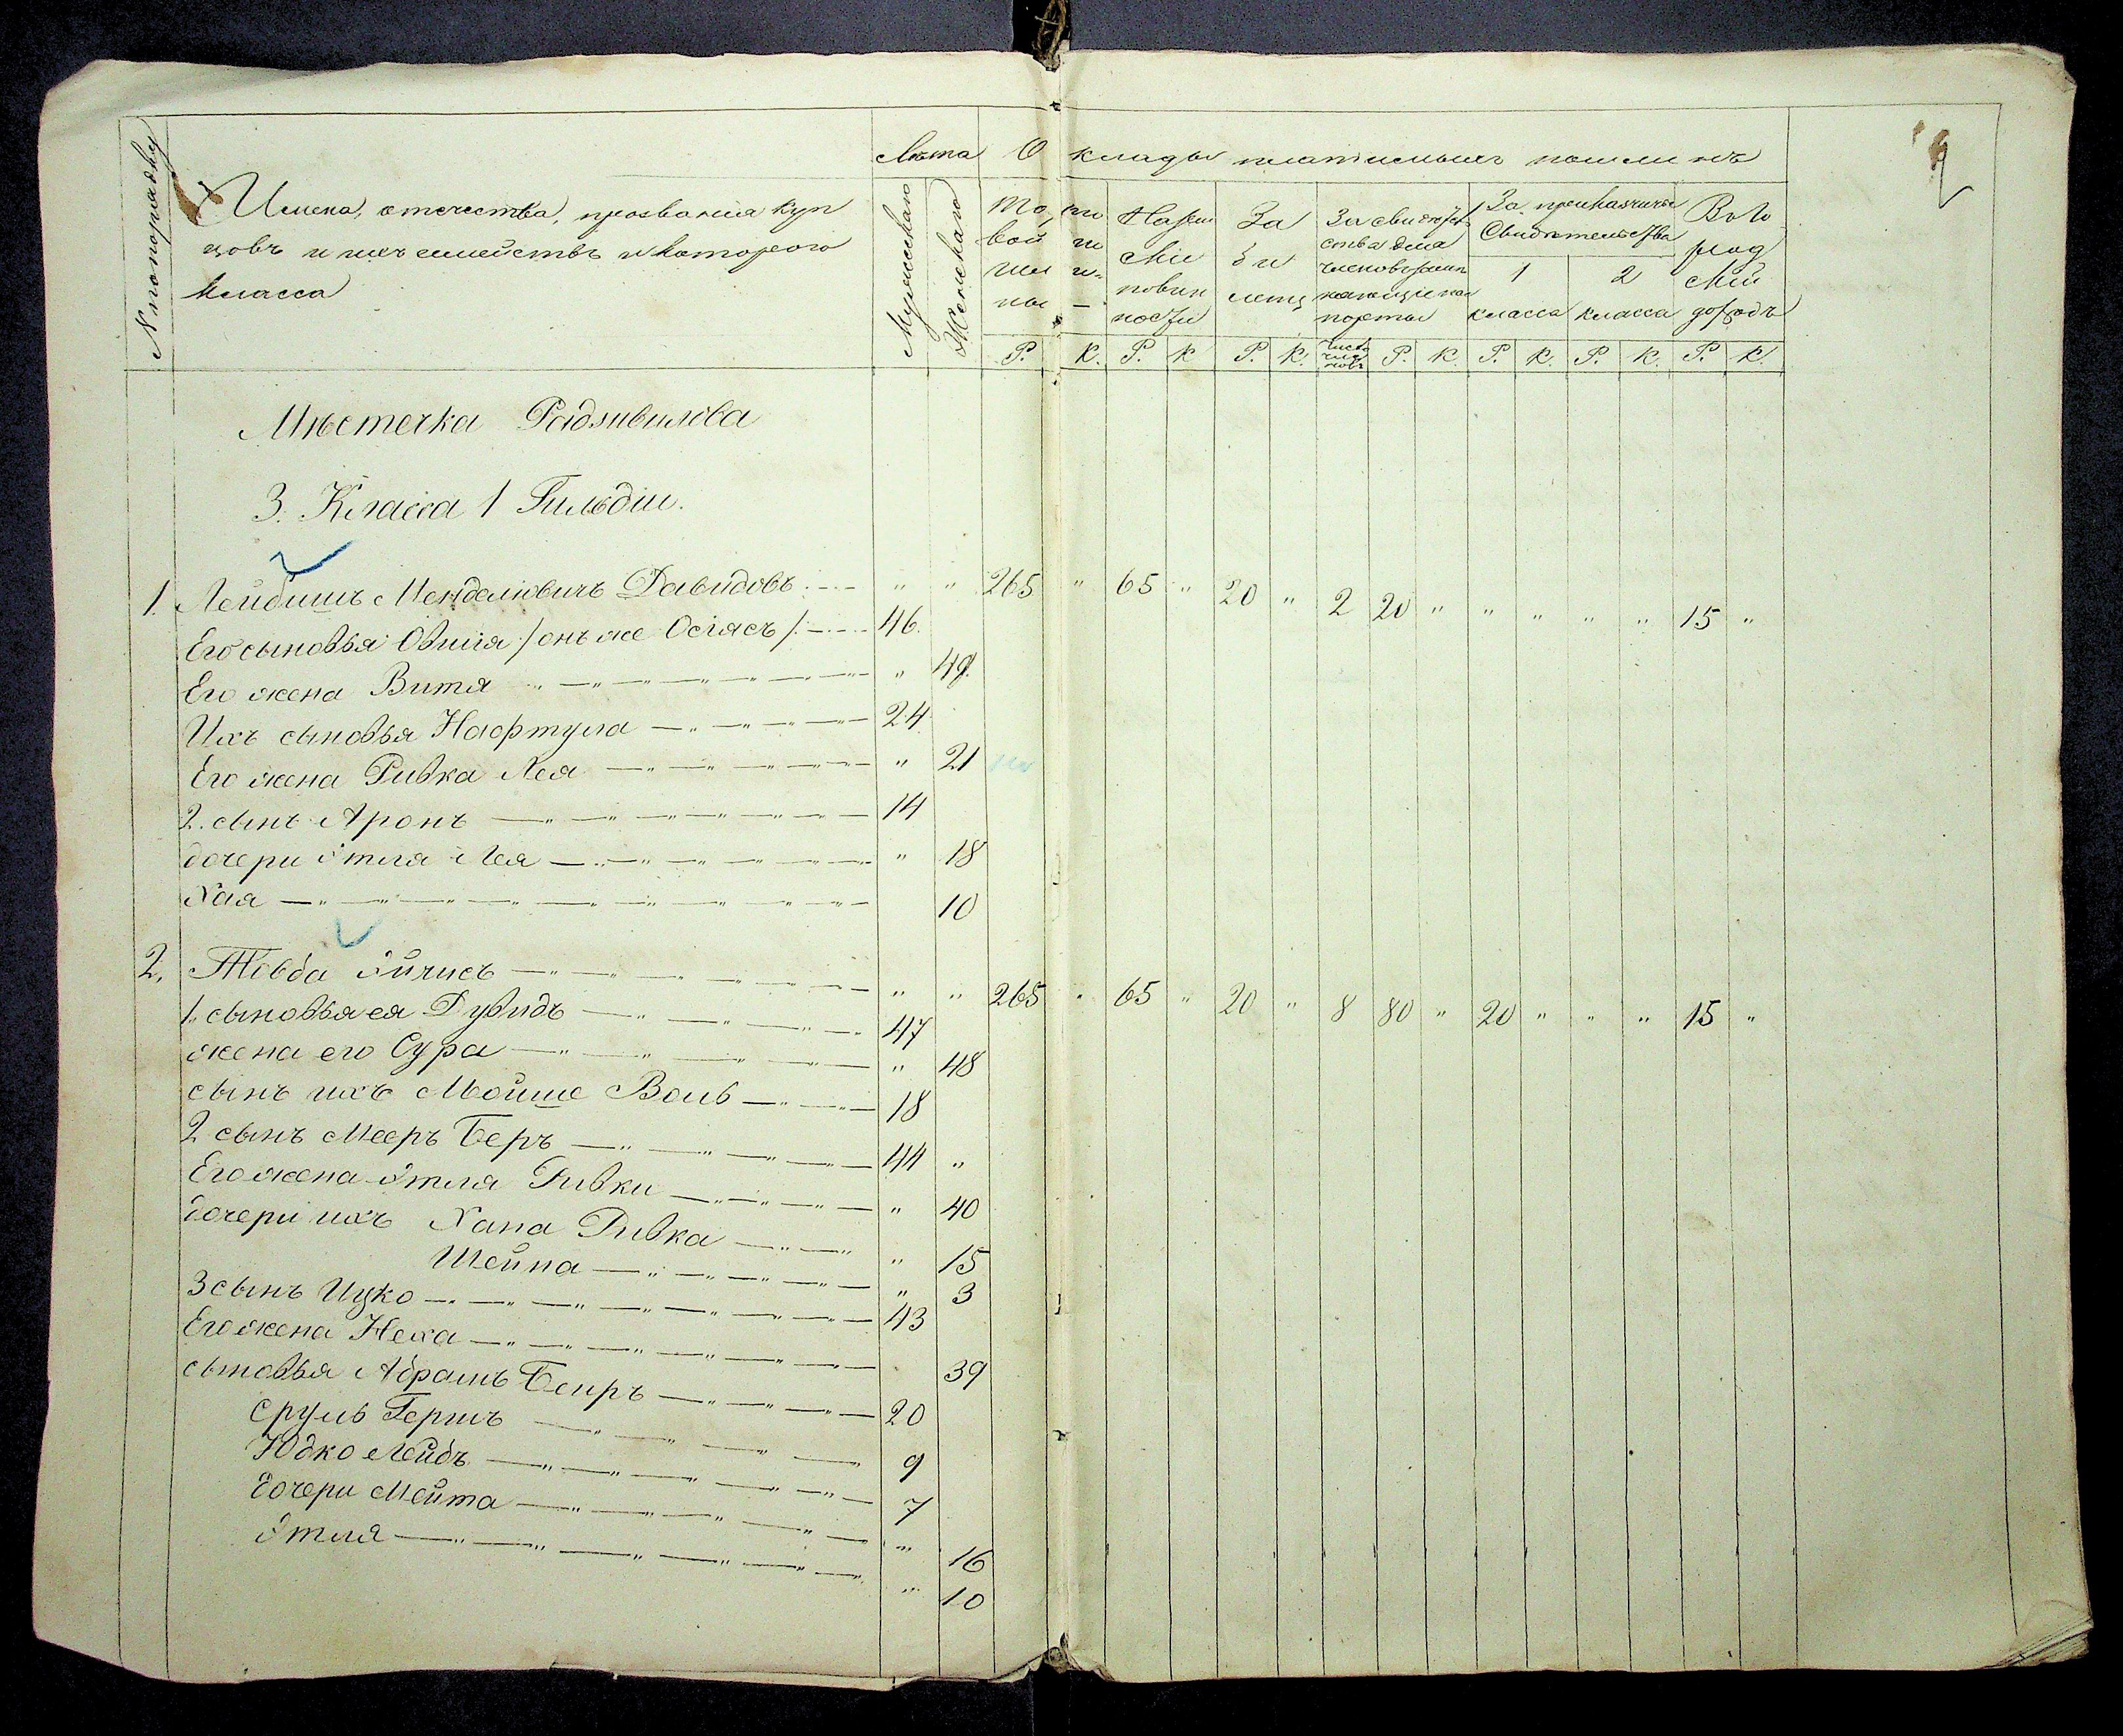 2
N попорядку
Имена, отечества, прозвания куп
цовъ и ихъ семействъ и которого
класса
Лѣта
Мужескаго
Женскаго
Оклады платимыхъ пошлинъ
Торго
вой по
шли
ны
Земскія
повин
ности
За
би
летъ
За свидѣтель
ства для
членовъ
За прикащичьи
Свидѣтельства
1
класса
2
класса
Въ го
род
скій
доходъ
Р. К. Р. К. Р. К. Число членовъ Р. К. Р. К. Р. К. Р. К.
Мѣстечка Радзивилова
3. Класса 1 Гильдіи.
1. Лейбишъ Мендалювичъ Давидовъ " " 265 " 65 " 20 " 2 20 " " " " " 15 "
Его сыновья Овшія /онъ же Осіясъ/ 46.
Его жена Витя " 49.
Ихъ сыновья Нафтула 24
Его жена Ривка Лея " 21
2. сынъ Аронъ 14
дочери Этля Лея " 18
Хая 10
2. Товба Айчисъ " " 265 " 65 " 20 " 8 80 " 20 " " " 15 "
1. сыновья ея Дувидъ 47
жена его Сура " 48
сынъ ихъ Мойше Воль 18
2 сынъ Мееръ Беръ 44 "
Его жена Этля Ривки " 40
дочери ихъ Хана Ривка " 15
Шейна " 3
3 сынъ Ицко 43
Его жена Неха 39
сыновья Абрамъ Беиръ 20
Сруль Гершъ 9
Юдко Лейбъ 7
дочери Мейта " 16
Этля " 10